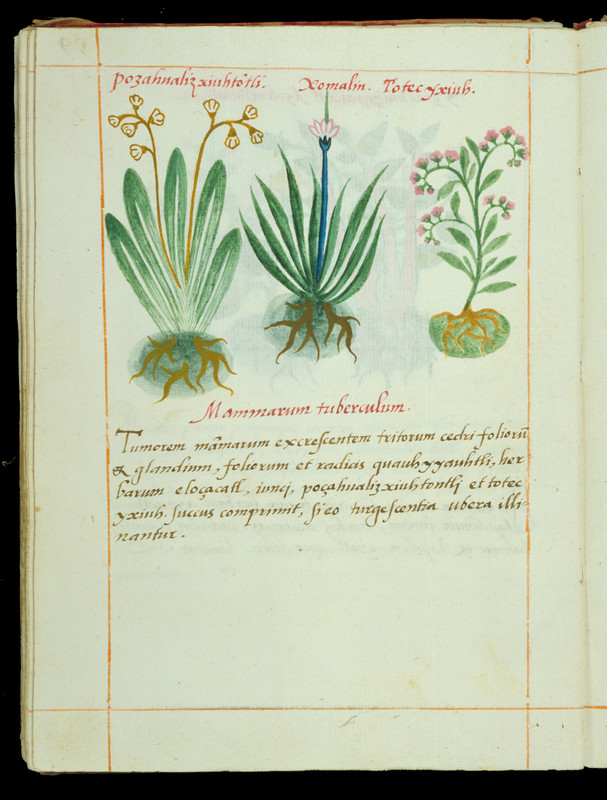 pozahualizxiuhtōtli. Xomalin. Totecyxiuh.
Mammarum tuberculum.
Tumorem māmarum excrescentem tritorum cedri foliorū
& glandium, foliorum et radias quauhyyauhtli, her
barum eloçacatl, iunci, poçahualizxiuhtontlj et totec
yxiuh. succus comprimit, si eo turgescentia ubera illi-
nantur.